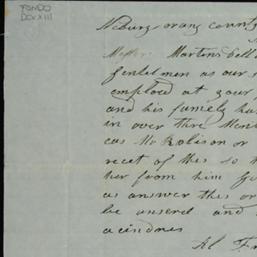 FONDO
DCVXIII
Neburg orang county
Messrs. Martens dell
Gentelmen as our
emploed at your
and his famely ha
in over thre Men
cas Mr Rolison or
recet of this so
her from him
as answer this or
be unsered and
acindnes
Al Fr